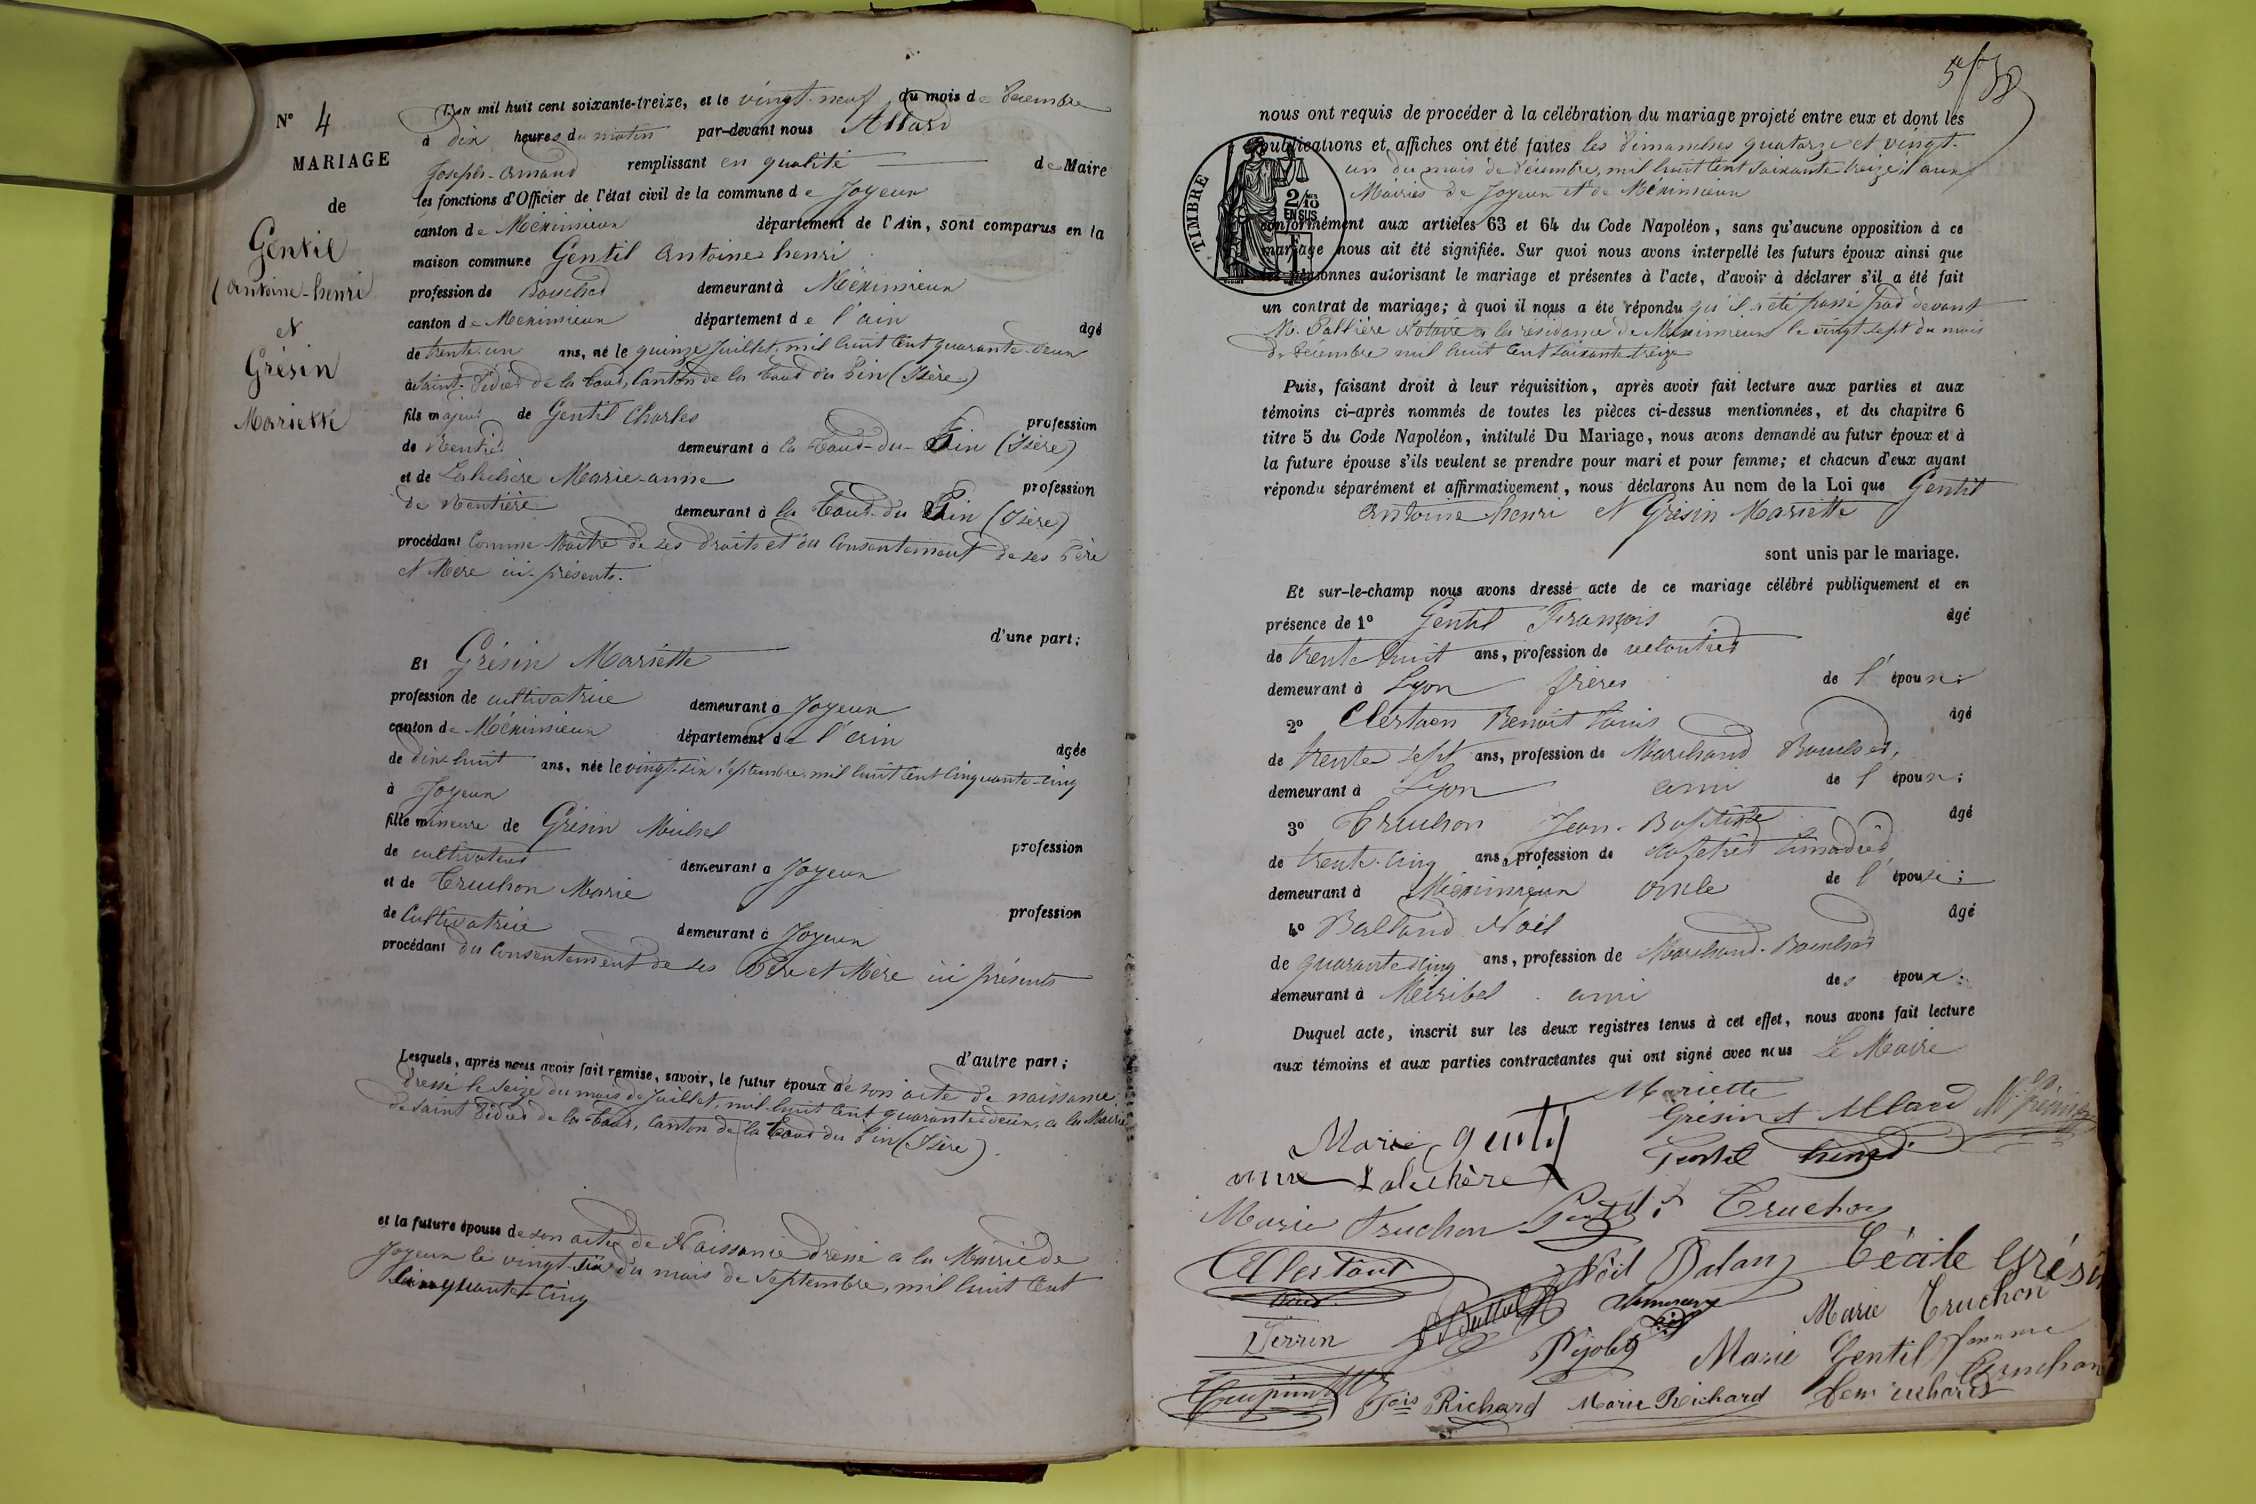 N° 4
MARIAGE
de
Gentil
(Antoine-henri
et
Grésin
Mariette
L'an mil huit cent soixante-treize, et le vingt-neuf du mois de Décembre
à dix heures du matin par-devant nous Allard
Joseph-Armand remplissant en qualité de Maire
les fonctions d'Officier de l'état civil de la commune de Joyeux
canton de Méximieux département de l'Ain, sont comparus en la
maison commune Gentil Antoine henri
profession de Boucher demeurant à Méximieux
canton de Méximieux département de l'ain âgé
de trente-un ans, né le quinze Juillet, mil huit cent quarante-deux
à Saint-Didier de la Tour, Canton de la Tour du Pin (Isère)
fils majeur de Gentil Charles profession
de Rentier demeurant à la Tour-du-Pin (Isère)
et de Lalichère Marie-anne profession
de Rentière demeurant à la Tour-du Pin (Isère)
procédant Comme Maître de ses droits et du Consentement de ses Père
et Mère ici-présents.
d'une part;
Et Grésin Mariette
profession de cultivatrice demeurant à Joyeux
canton de Méximieux département de l'ain agée
de dix-huit ans, née le vingt-six Septembre, mil huit cent cinquante-cinq
à Joyeux
fille mineure de Grésin Michel profession
de cultivateur demeurant à Joyeux
et de Truchon Marie profession
de Cultivatrice demeurant à Joyeux
procédant du Consentement de ses Père et Mère ici présents
d'autre part;
Lesquels, après nous avoir fait remise, savoir, le futur époux de son acte de naissance,
dressé le seize du mois de Juillet, mil-huit cent quarante-deux, à la Mairie
de Saint Didier de la Tour, Canton de la Tour du Pin (Isère).
et la future épouse de son acte de Naissance dressé à la Mairie de
Joyeux le vingt-six du mois de Septembre, mil huit Cent
Cinquante-Cinq
nous ont requis de procéder à la célébration du mariage projeté entre eux et dont les
publications et affiches ont été faites les dimanches quatorze et vingt-
un du mois de décembre, mil huit cent soixante treize aux
Mairies de Joyeux et de Méximieux
TIMBRE
2/10
EN SUS
conformément aux articles 63 et 64 du Code Napoléon, sans qu'aucune opposition à ce
mariage nous ait été signifiée. Sur quoi nous avons interpellé les futurs époux ainsi que
les personnes autorisant le mariage et présentes à l'acte, d'avoir à déclarer s'il a été fait
un contrat de mariage; à quoi il nous a été répondu qu'il a été passé par devant
M. Notaire à la résidence de Méximieux le vingt-sept du mois
de Décembre mil huit Cent soixante-treize
Puis, faisant droit à leur réquisition, après avoir fait lecture aux parties et aux
témoins ci-après nommés de toutes les pièces ci-dessus mentionnées, et du chapitre 6
titre 5 du Code Napoléon, intitulé Du Mariage, nous avons demandé au futur époux et à
la future épouse s'ils veulent se prendre pour mari et pour femme; et chacun d'eux ayant
répondu séparément et affirmativement, nous déclarons Au nom de la Loi que Gentil
Antoine henri et Grésin Mariette
sont unis par le mariage.
Et sur-le-champ nous avons dressé acte de ce mariage célébré publiquement et en
présence de 1° Gentil François âgé
de trente huit ans, profession de veloutier
demeurant à Lyon frères de l'époux;
2° Benoit Louis âgé
de trente sept ans, profession de Marchand Boucher,
demeurant à Lyon ami de l'époux;
3° Truchon Jean-Baptiste âgé
de trente-cinq ans, profession de
demeurant à Méximieux oncle de l'épouse;
4° Balland Noël âgé
de quarante-cinq ans, profession de Marchand-Boucher
demeurant à Miribel ami des époux;
Duquel acte, inscrit sur les deux registres tenus à cet effet, nous avons fait lecture
aux témoins et aux parties contractantes qui ont signé avec nous Le Maire
Mariette
Grésin A Allard
Marie gentil
anne Lalichère Gentil henri
Marie Truchon Gentil F Truchon
Noël Balan Cécile Grésin
Perrin Marie Truchon
Pijolet Marie Gentil femme Truchon
Fois Richard Marie Richard